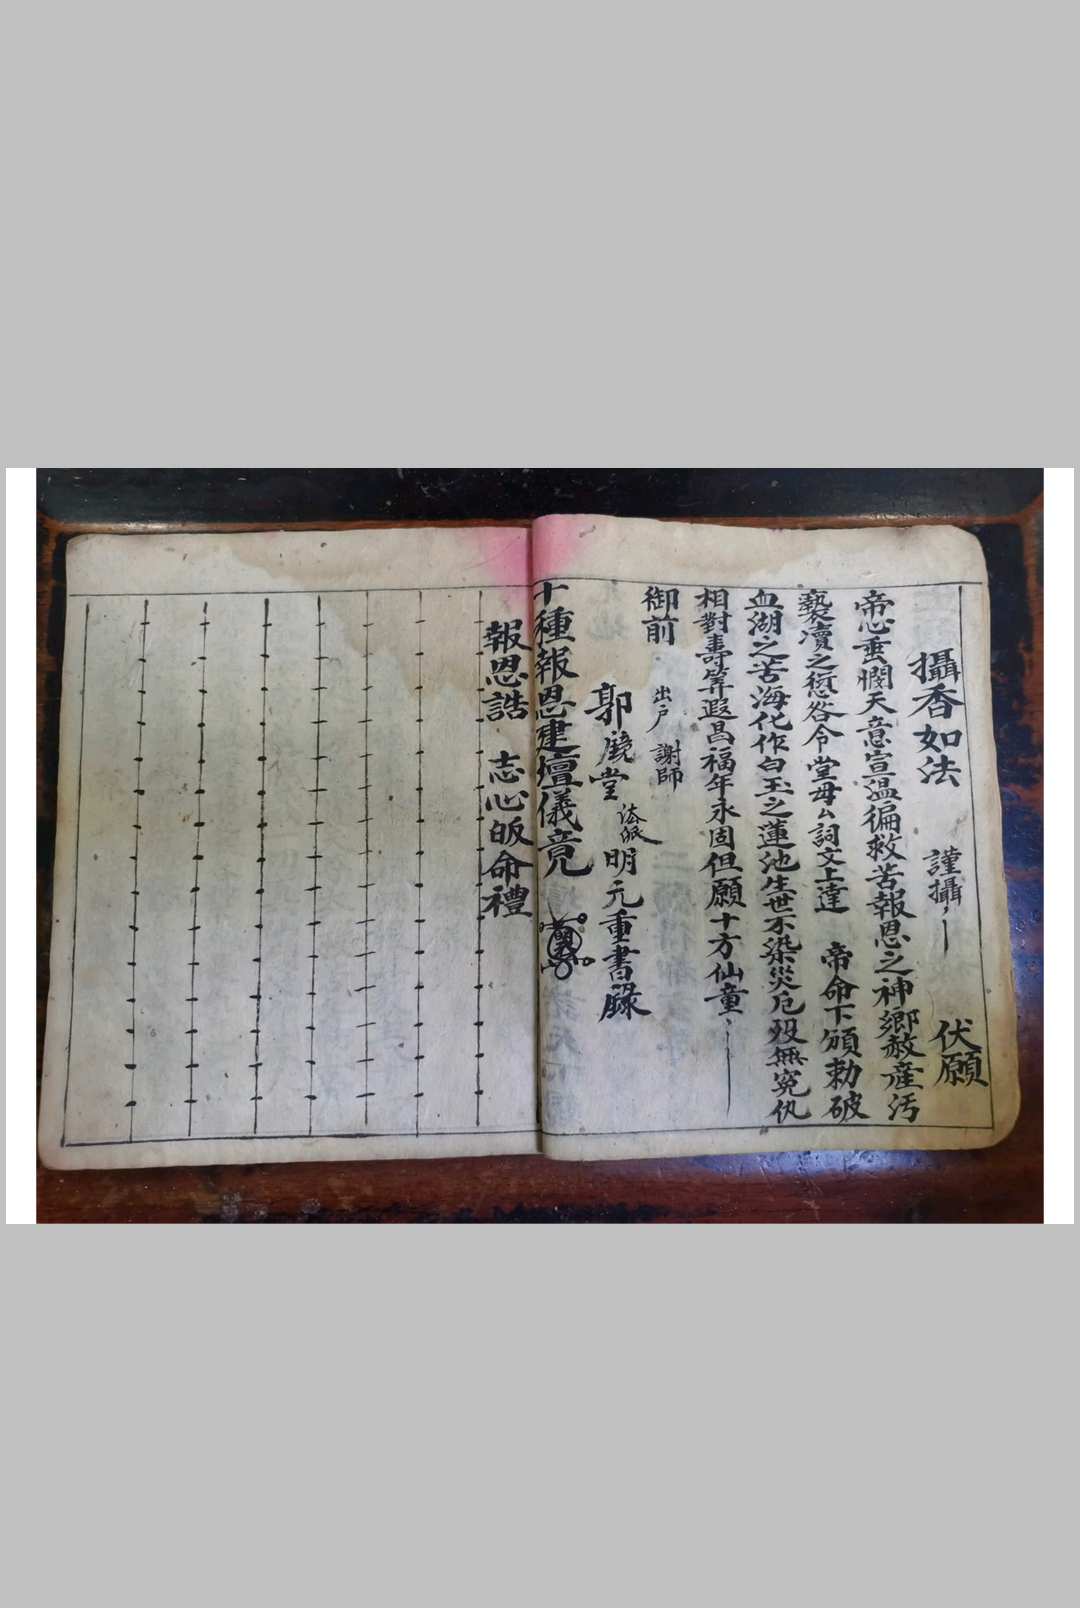 攝香如法 謹攝 伏願
帝心垂憫天意宣温徧救苦報恩之神鄉赦產污
褻瀆之愆咎令堂母厶詞文上達 帝命下頒勅破
血湖之苦海化作白玉之蓮池生世不染災厄歿無寃仇
相對壽筭遐昌福年永固但願十方仙童
御前 出戶 謝師
郭 堂 法派 明元重書錄
十種報恩建壇儀竟
報恩誥 志心皈命禮